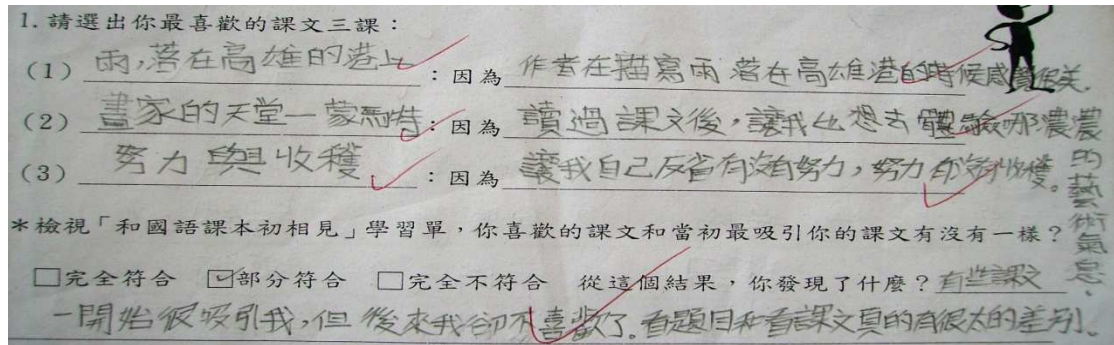 1. 請選出你最喜歡的課文三課：
(1) 雨，落在高雄的港上：因為 作者在描寫雨落在高雄港的時候感覺很美．
(2) 畫家的天堂─蒙馬特：因為 讀過課文後，讓我也想去體驗那濃濃的藝術氣息．
(3) 努力與收穫：因為 讓我自己反省有沒有努力，努力有沒有收穫。
*檢視「和國語課本初相見」學習單，你喜歡的課文和當初最吸引你的課文有沒有一樣？
□完全符合 ☑部分符合 □完全不符合 從這個結果，你發現了什麼？有些課文
一開始很吸引我，但後來我卻不喜歡了。看題目和看課文真的有很大的差別。